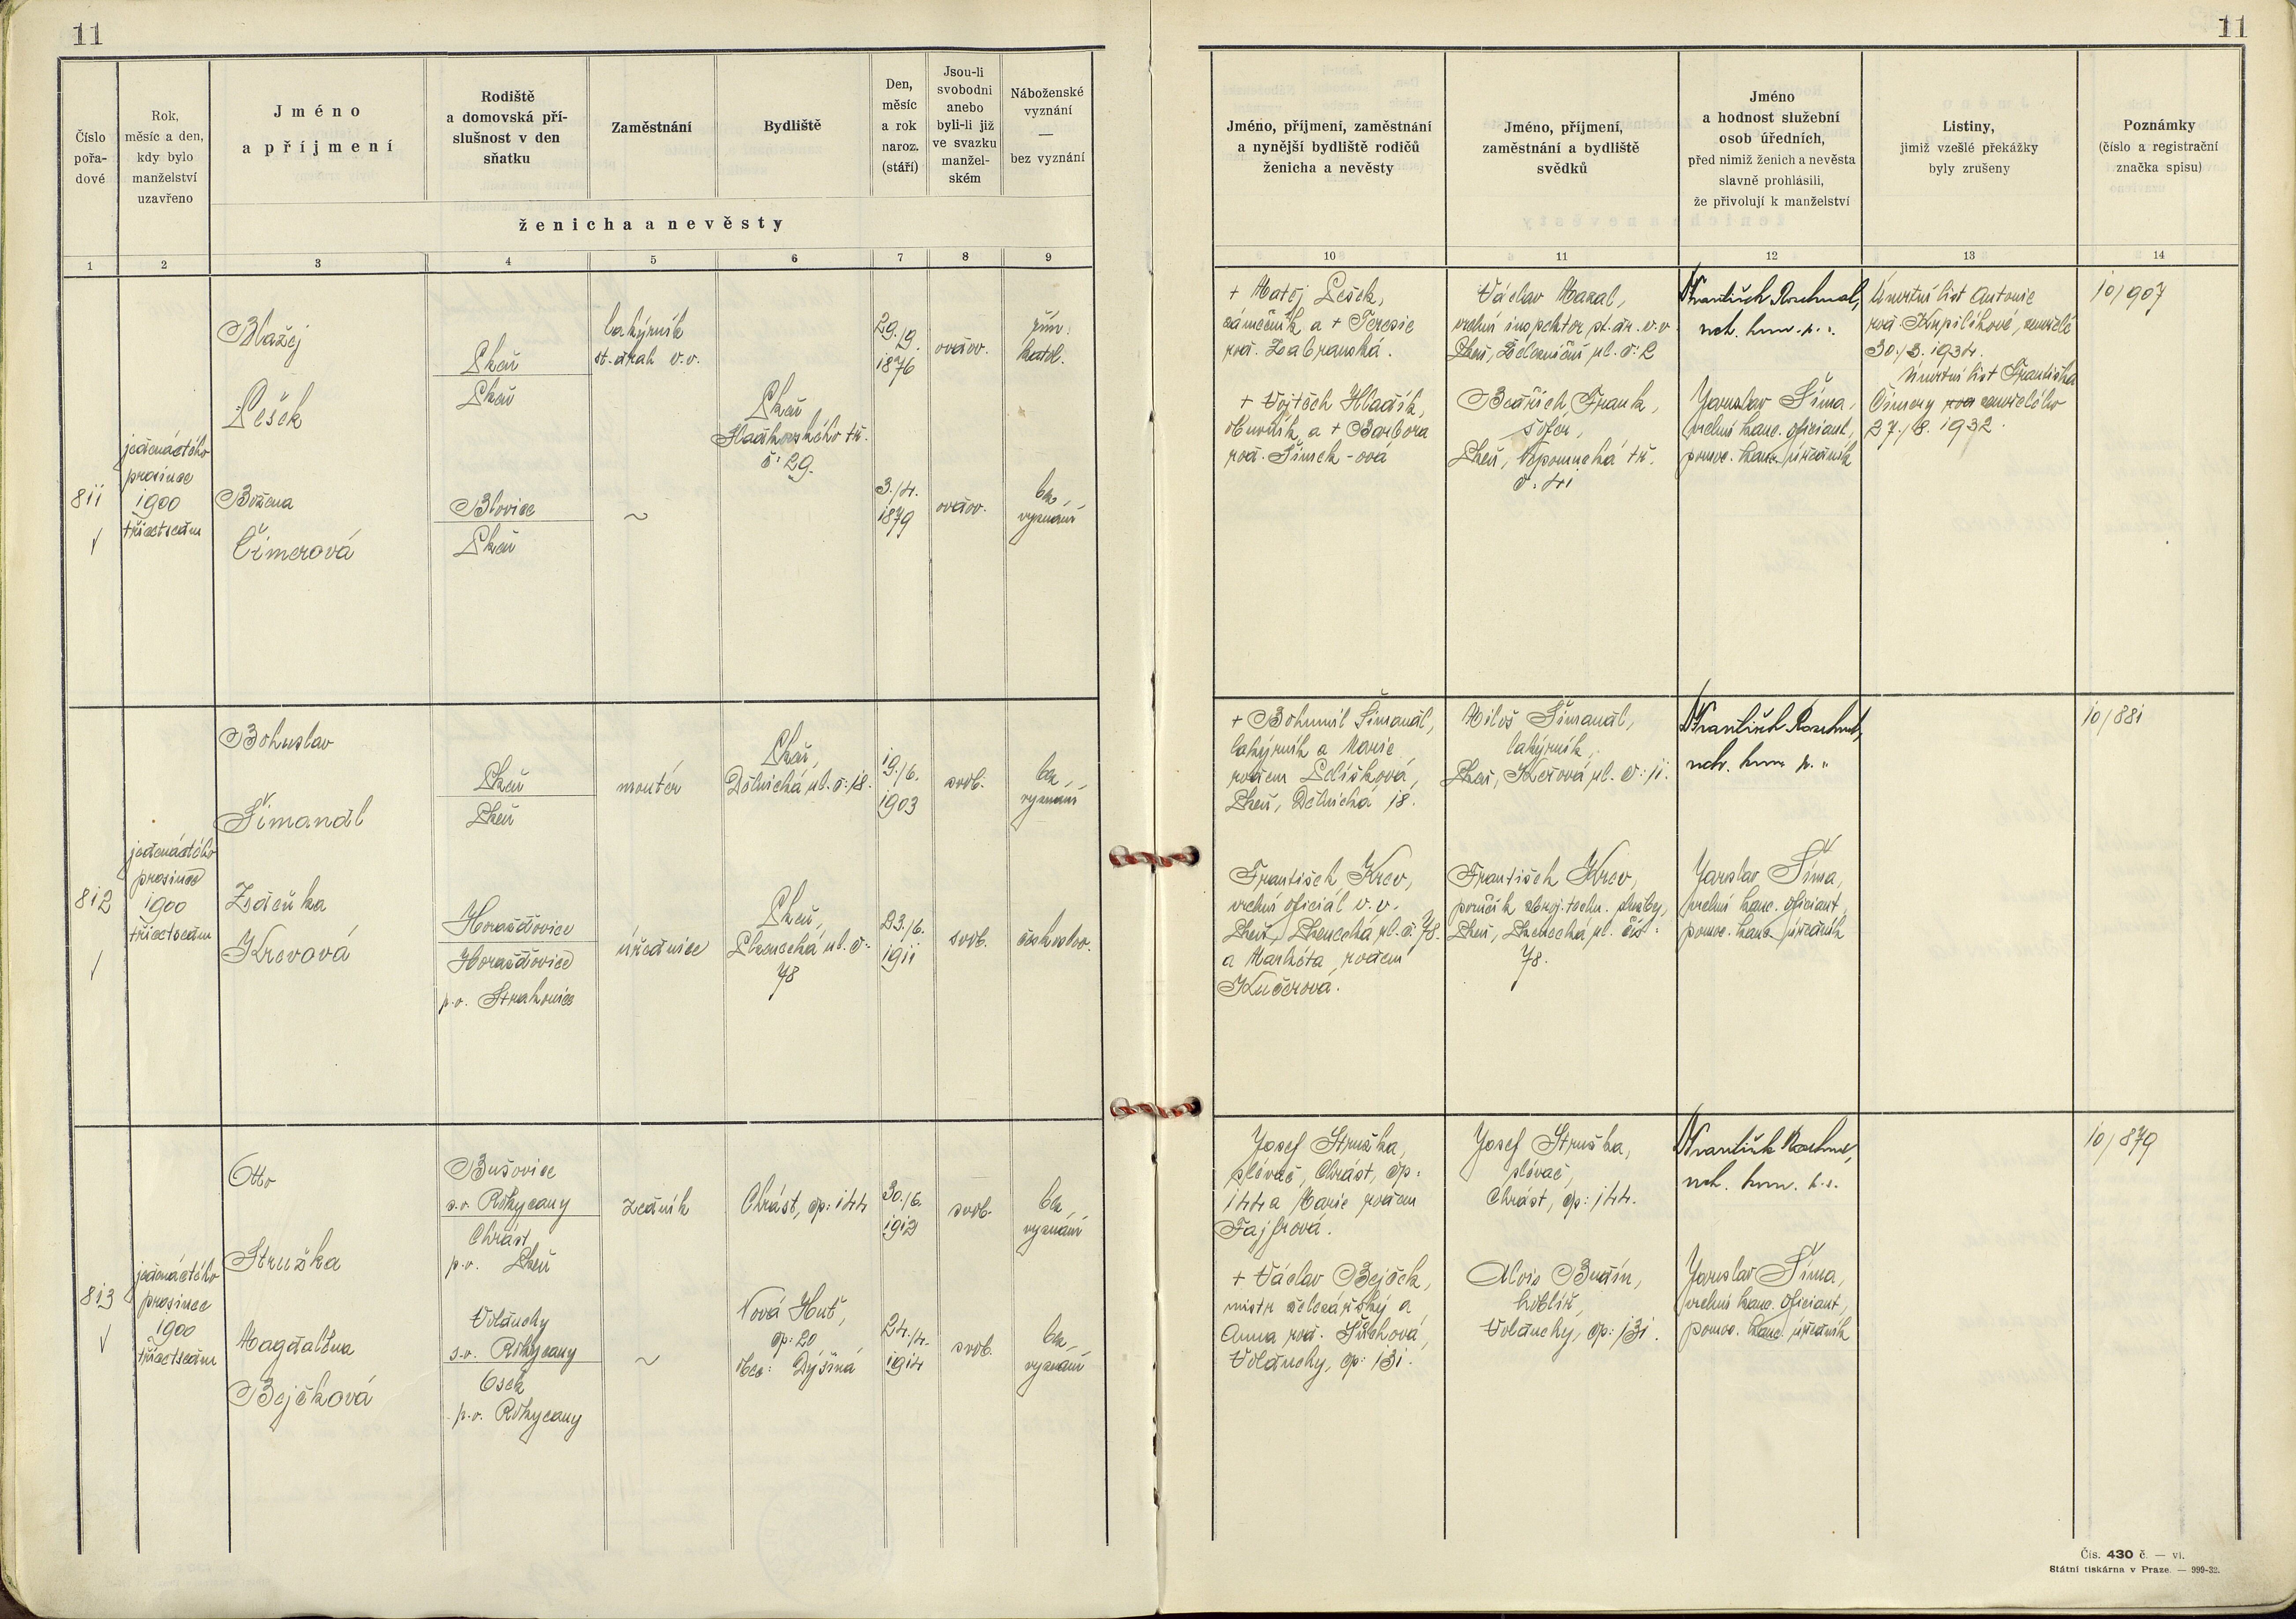 11
11
Číslo
pořa-
dové
Rok,
měsíc a den,
kdy bylo
manželství
uzavřeno
Jméno
a příjmení
Rodiště
a domovská pří-
slušnost v den
sňatku
Zaměstnání
Bydliště
Den,
měsíc
a rok
naroz.
(stáří)
Jsou-li
svobodni
anebo
byli-li již
ve svazku
manžel-
ském
Náboženské
vyznání
—
bez vyznání
ženicha a nevěsty
Jméno, příjmení, zaměstnání
a nynější bydliště rodičů
ženicha a nevěsty
Jméno, příjmení,
zaměstnání a bydliště
svědků
Jméno
a hodnost služební
osob úředních,
před nimiž ženich a nevěsta
slavně prohlásili,
že přivolují k manželství
Listiny,
jimiž vzešlé překážky
byly zrušeny
Poznámky
(číslo a registrační
značka spisu)
1 2 3 4 5 6 7 8 9 10 11 12 13 14
811
jedenáctého
prosince
1900
třicetsedm
Blažej
Pešek
Plzeň
Plzeň
lakýrník
st. drah v.v.
Plzeň
Sladkovského tř.
č: 29.
29./9.
1876
ovdov.
řím.
katol.
Božena
Čimerová
Blovice
Plzeň
~
3./4.
1879
ovdov.
bez
vyznání
+ Matěj Pešek,
zámečník a + Terezie
roz. Zabranská.
+ Vojtěch Hladík,
obuvník a + Barbora
roz. Šimek-ová
Václav Mazal,
vrchní inspektor st. dr. v.v.
Plzeň, Železniční ul. č: 2
Bedřich Frank,
šofér,
Plzeň, Nepomucká tř.
č: 41
František
Jaroslav Šíma,
vrchní kanc. oficiant,
pomoc. kanc. úředník
Úmrtní list Antonie
roz. Kupilíkové, zemřelé
30./3. 1934.
Úmrtní list Františka
Čimery roz zemřelého
27./8. 1932.
10/907
812
jedenáctého
prosince
1900
třicetsedm
Bohuslav
Šimandl
Plzeň
Plzeň
montér
Plzeň,
Dělnická ul. č: 18.
19./6.
1903
svob.
bez
vyznání
Zdeňka
Krevová
Horažďovice
Horažďovice
p.o. Strakonice
úřednice
Plzeň,
Plzenecká ul. č:
78
23./6.
1911
svob.
českoslov.
+ Bohumil Šimandl,
lakýrník a Marie
rozem Pelíšková,
Plzeň, Dělnická 18.
František Krev,
vrchní oficiál v.v.
Plzeň, Plzenecká ul. č. 78.
a Markéta rozem
Kučerová.
Miloš Šimandl,
lakýrník,
Plzeň, Kešová ul. č: 11.
František Krev,
poručík zbroj. techn. služby,
Plzeň, Plzenecká ul. čís:
78.
František
Jaroslav Šíma,
vrchní kanc. oficiant,
pomoc. kanc. úředník
10/881
813
jedenáctého
prosince
1900
třicetsedm
Otto
Stružka
Bušovice
s.o. Rokycany
Chrást
p.o. Plzeň
zedník
Chrást, čp: 144
30./6.
1912
svob.
bez
vyznání
Magdalena
Bejčková
Volduchy
s.o. Rokycany
Osek
p.o. Rokycany
~
Nová Huť,
čp: 20
obec: Dýšiná
24./4.
1914
svob.
bez
vyznání
Josef Stružka,
slévač, Chrást, čp:
144 a Marie rozem
Fajfrová.
+ Václav Bejček,
mistr
Anna roz.
Volduchy, čp: 131.
Josef Stružka,
slévač,
Chrást, čp: 144.
Alois Budín,
kotlář,
Volduchy, čp: 131.
František
Jaroslav Šíma,
vrchní kanc. oficiant,
pomoc. kanc. úředník
10/879
Čís. 430 č. — vi.
Státní tiskárna v Praze. — 999-32.